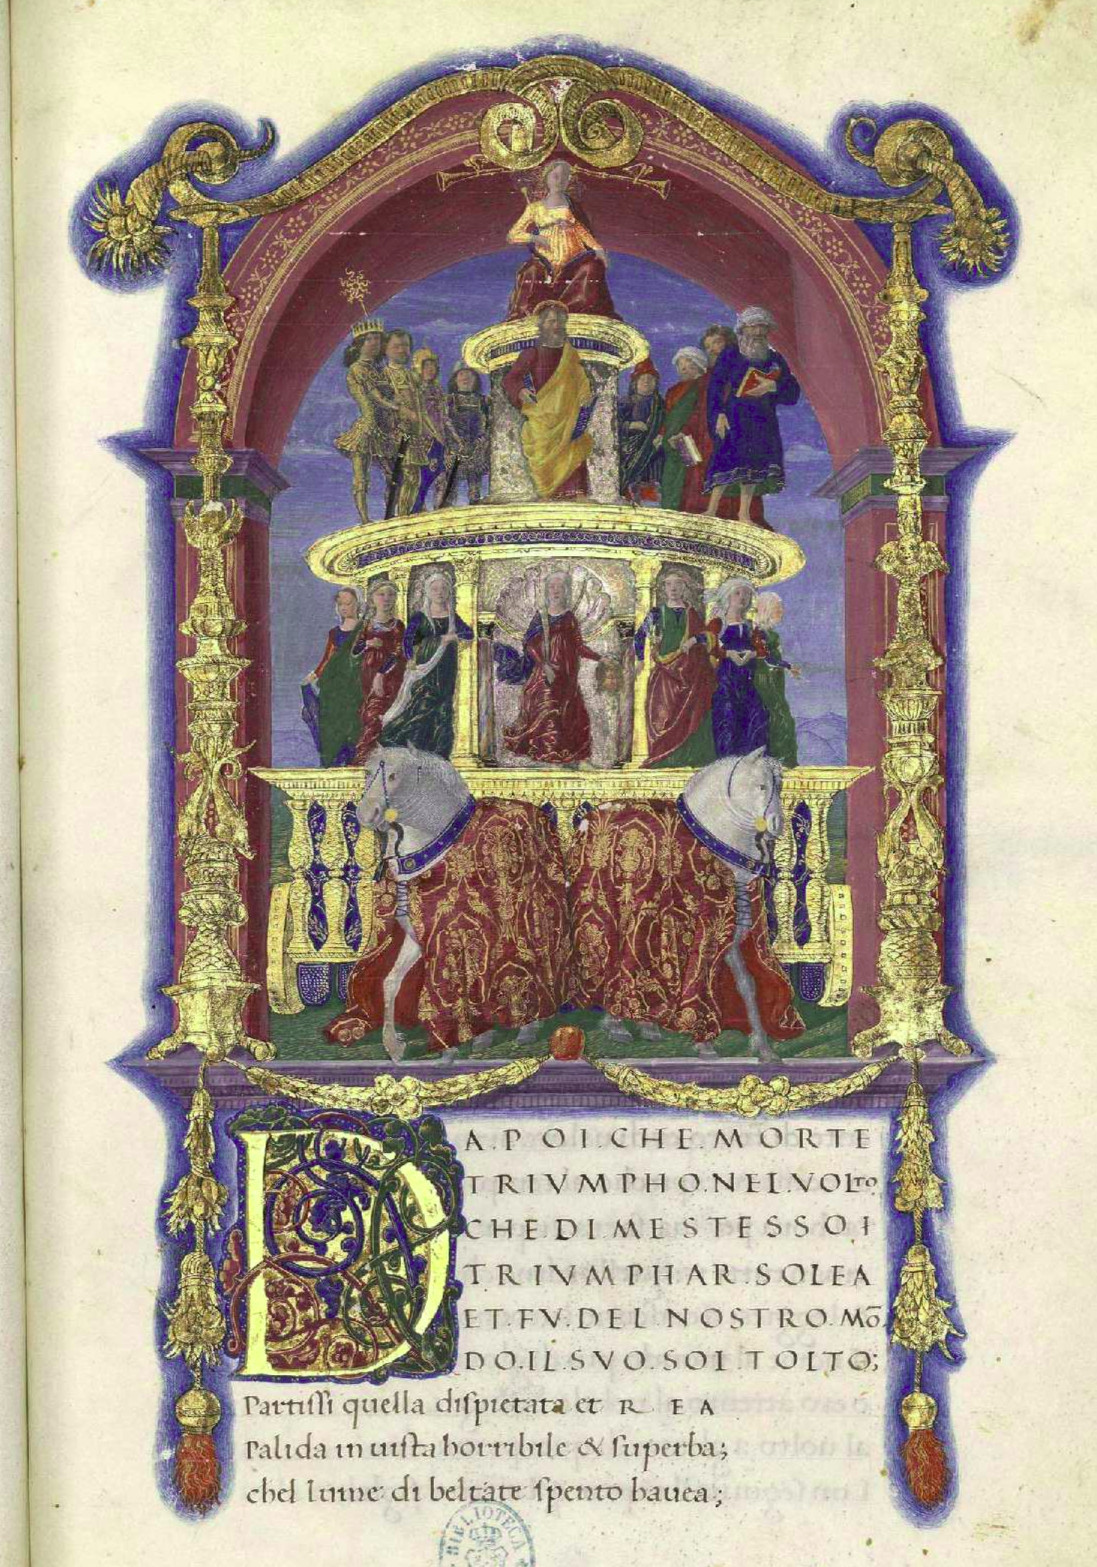 DA.POI.CHE.MORTE
TRIVMPHO.NEL.VOLTO.
CHE.DI.ME STESSO.I
TRIVMPHAR.SOLEA
ET.FV.DEL NOSTRO.MŌ
DO.IL.SVO.SOL TOLTO;
Partissi quella dispietata et REA
Palida in uista horribile & superba;
chel lume di beltate spento hauea;
BIBLIOTECA